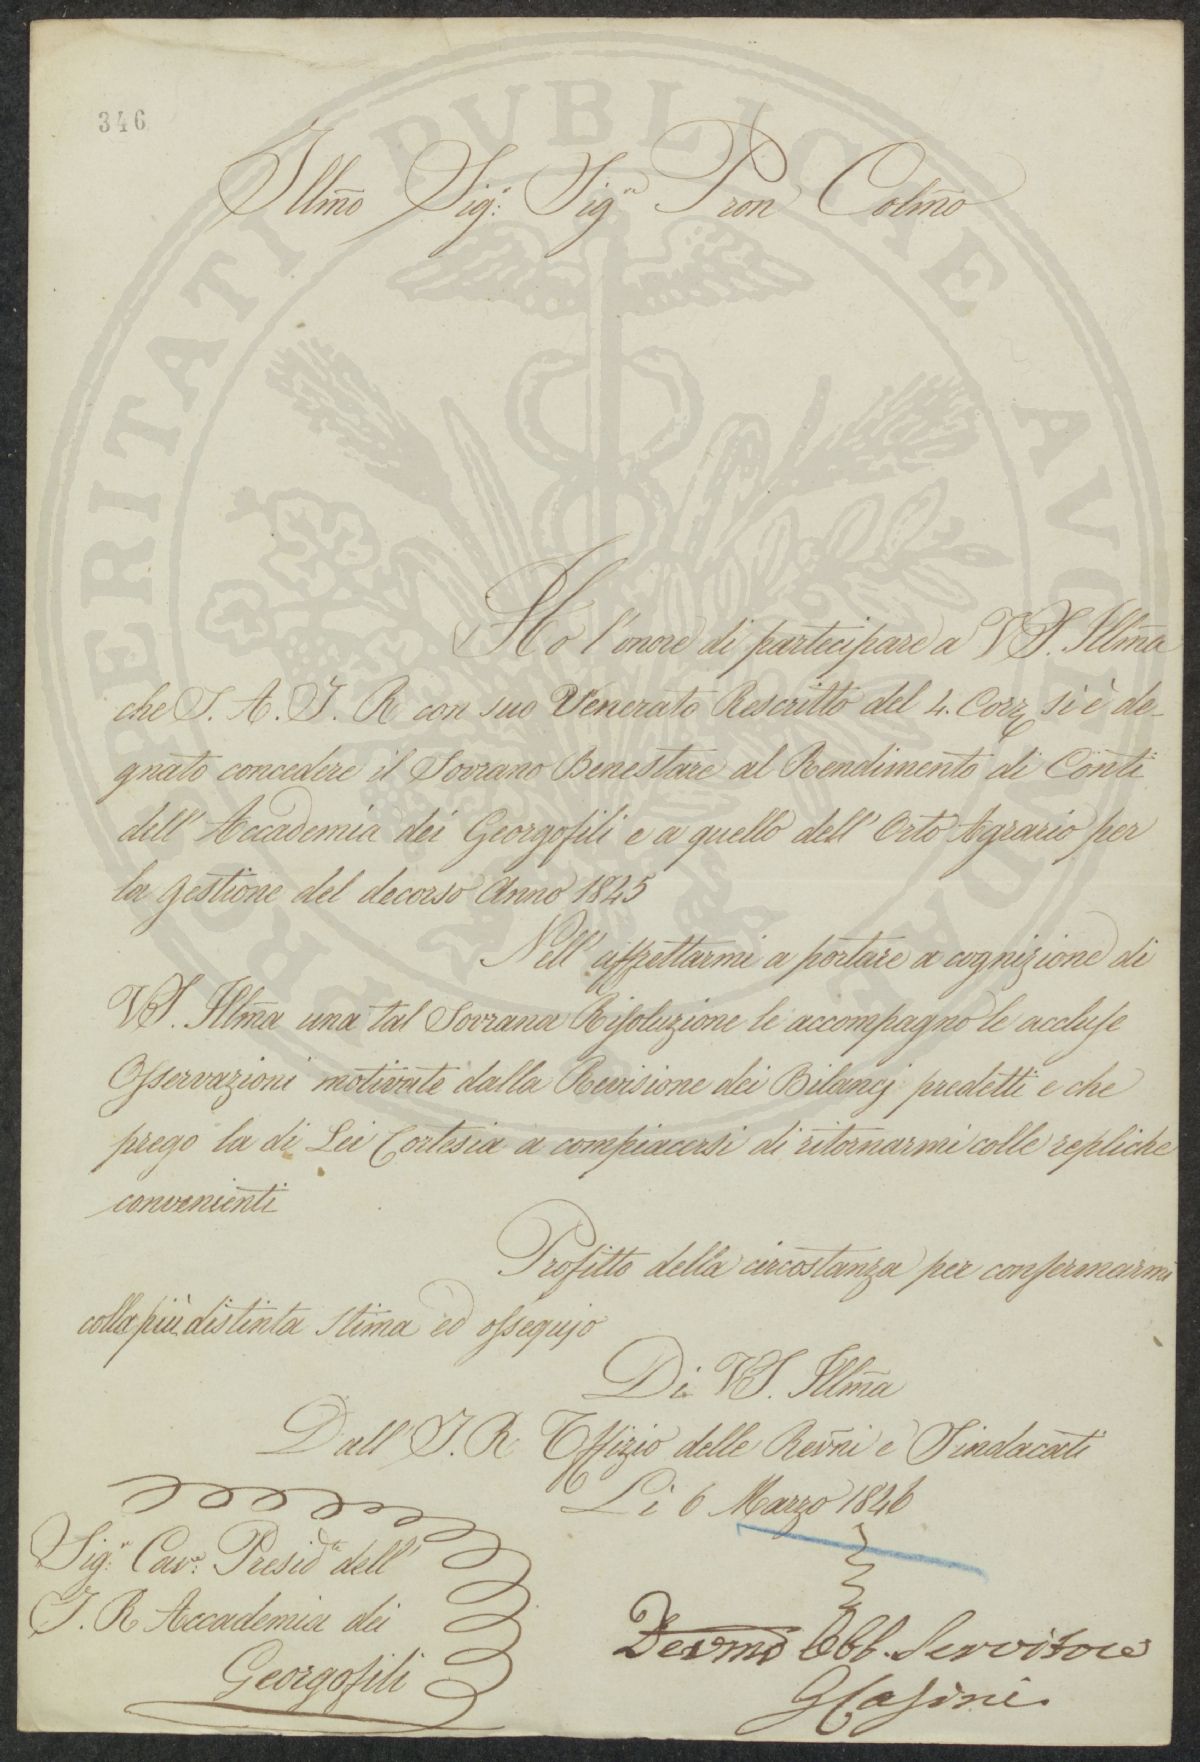 346
Illmo Sig.r Sig.r Pron Colmo
Ho l'onore di partecipare a VS. Illma
che S. A. I. R con suo Venerato Rescritto del 4. Corr.e si è de-
gnato concedere il Sovrano Benestare al Rendimento di Conti
dell' Accademia dei Georgofili e a quello dell' Orto Agrario per
la gestione del decorso Anno 1845
Nell' affrettarmi a portare a cognizione di
VS. Illma una tal Sovrana Risoluzione le accompagno le accluse
Osservazioni motivate dalla Revisione dei Bilancj predetti e che
prego la di Lei Cortesia a compiacersi di ritornarmi colle repliche
convenienti
Profitto della circostanza per confermarmi
colla più distinta stima ed ossequio
Di VS. Illma
Dall' I. R Uffizio delle Revni e Sindacati
Li 6 Marzo 1846
Sig.r Cav.e Presid.te dell'
I. R Accademia dei
Georgofili
Devmo Obb. Servitore
G Casini
PROSPERITATI PVBLICAE AVGENDAE